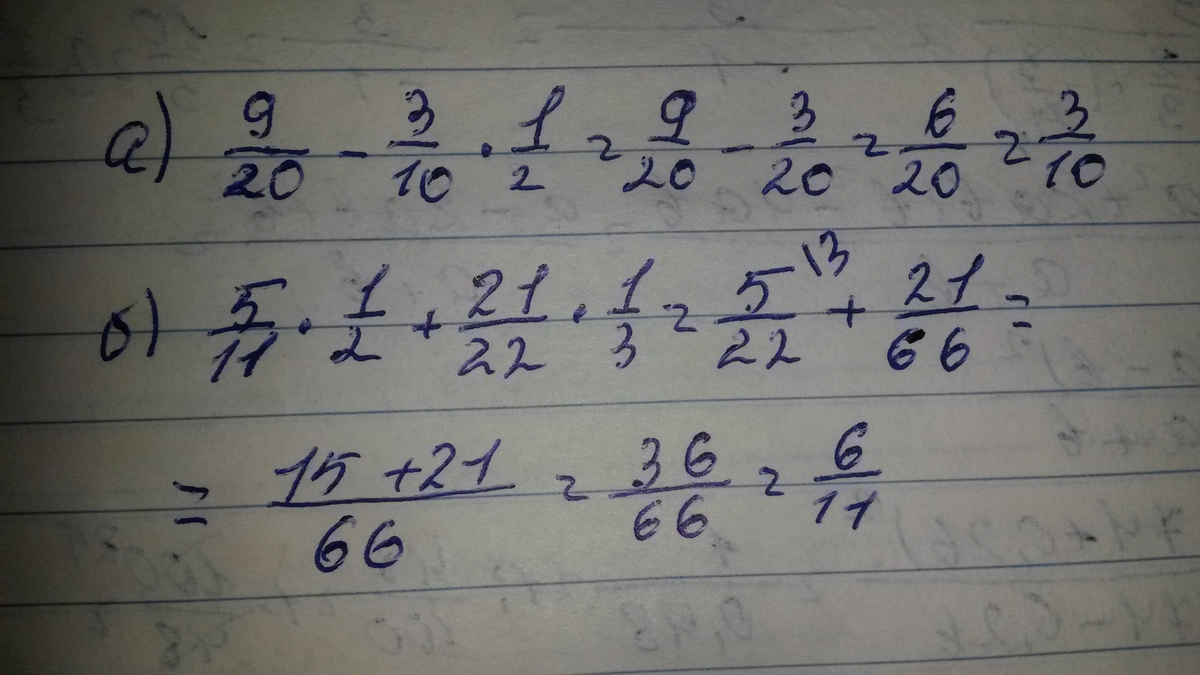 а) 9/20 - 3/10 · 1/2 = 9/20 - 3/20 = 6/20 = 3/10
б) 5/11 · 1/2 + 21/22 · 1/3 = 5/22 \3 + 21/66 =
= 15+21/66 = 36/66 = 6/11